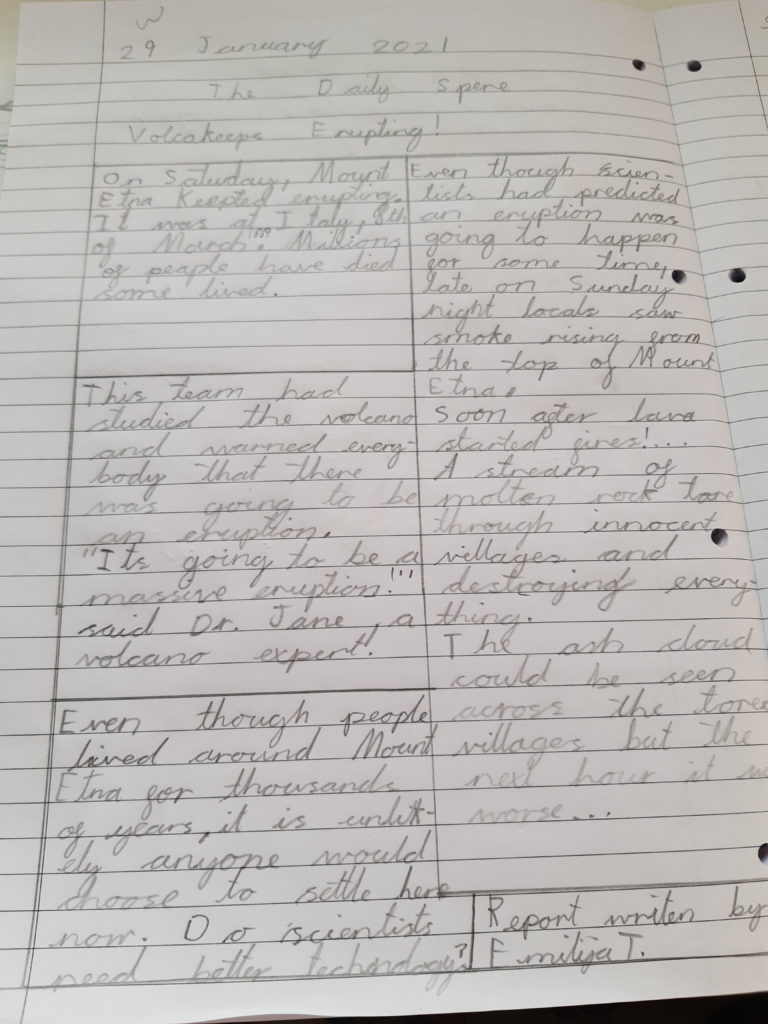 W
29 January 2021
The Daily Spere
Volcakeeps Erupting!
On Satuday, Mount
Etna Keepted erupting.
It was at Italy, 8th
of March. Millions
of people have died
some lived.
This team had
studied the volcano
and warned every-
body that there
was going to be
an eruption.
"Its going to be a
massive eruption!"
said Dr. Jane, a
volcano expert!
Even though people
lived around Mount
Etna for thousands
of years, it is unlik-
ely anyone would
choose to settle here
now. Do scientists
need better technology?
Even though scien-
tists had predicted
an eruption was
going to happen
for some time,
late on Sunday
night locals saw
smoke rising from
the top of Mount
Etna.
Soon after lava
started fires!...
A stream of
molten rock tore
through innocent
villages and
destroying every-
thing.
The ash cloud
could be seen
across the toren
villages but the
next hour it
worse...
Report writen by
Emilija T.